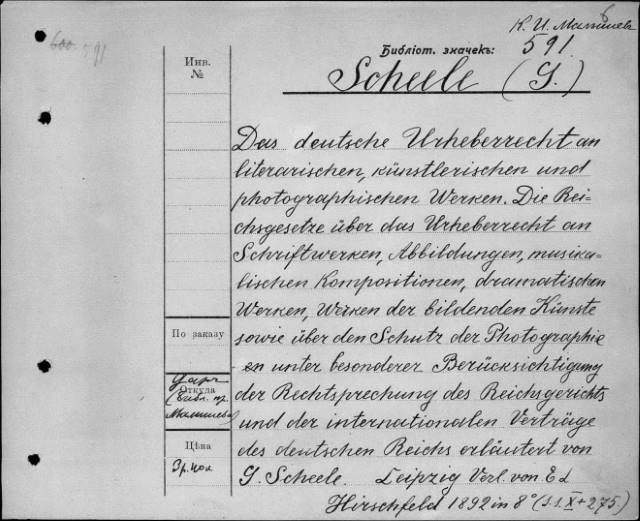 К. И. Малышева
600. 591
Библіот. значекъ: 591
Инв.
№
Scheele (G.)
Das deutsche Urheberrecht an
literarischen, künstlerischen und
photographischen Werken. Die Rei-
chsgesetze über das Urheberrecht an
Schriftwerken, Abbildungen, musika-
lischen Kompositionen, dramatischen
Werken, Werken der bildenden Künste
sowie über den Schutz der Photographie
en unter besonderer Berücksichtigung
der Rechtsprechung des Reichsgerichts
und der internationalen Verträge
des deutschen Reichs erläutert von
G. Scheele. Leipzig Verl. von Ed
Hirschfeld 1892 in 8° (s.s. X + 275.)
По заказу
Даръ
Откуда
(библ. пр.
Малышева)
Цѣна
3 р. 40 к